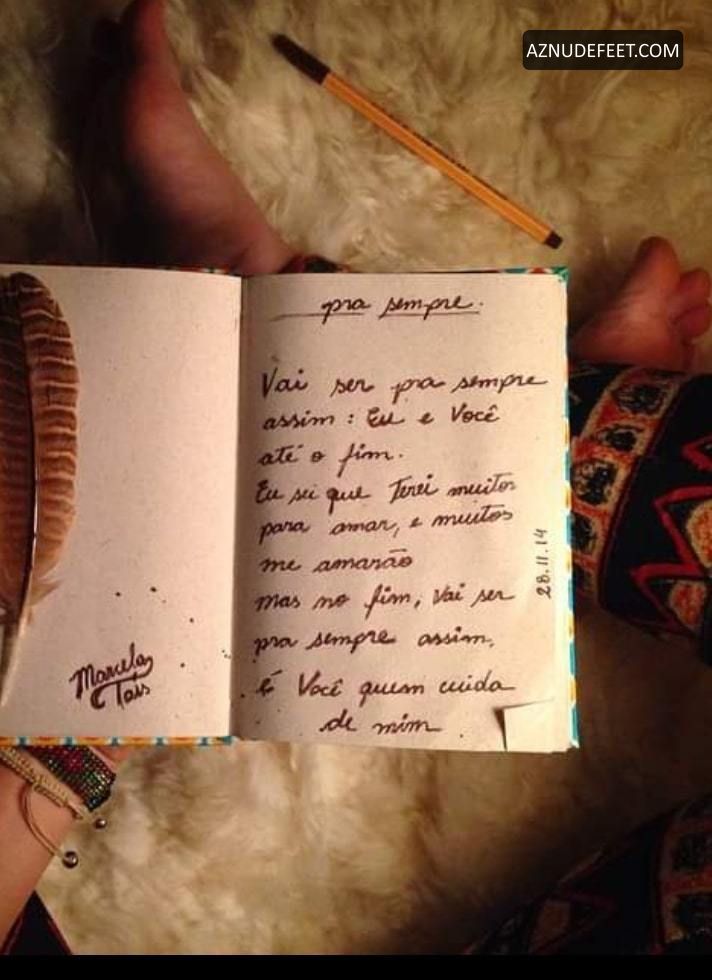 AZNUDEFEET.COM
pra sempre.
Vai ser pra sempre
assim : Eu e Você
até o fim.
Eu sei que Terei muitos
para amar, e muitos
me amarão
mas no fim, Vai ser
pra sempre assim.
é Você quem cuida
de mim.
28.11.14
Marcela
Taís